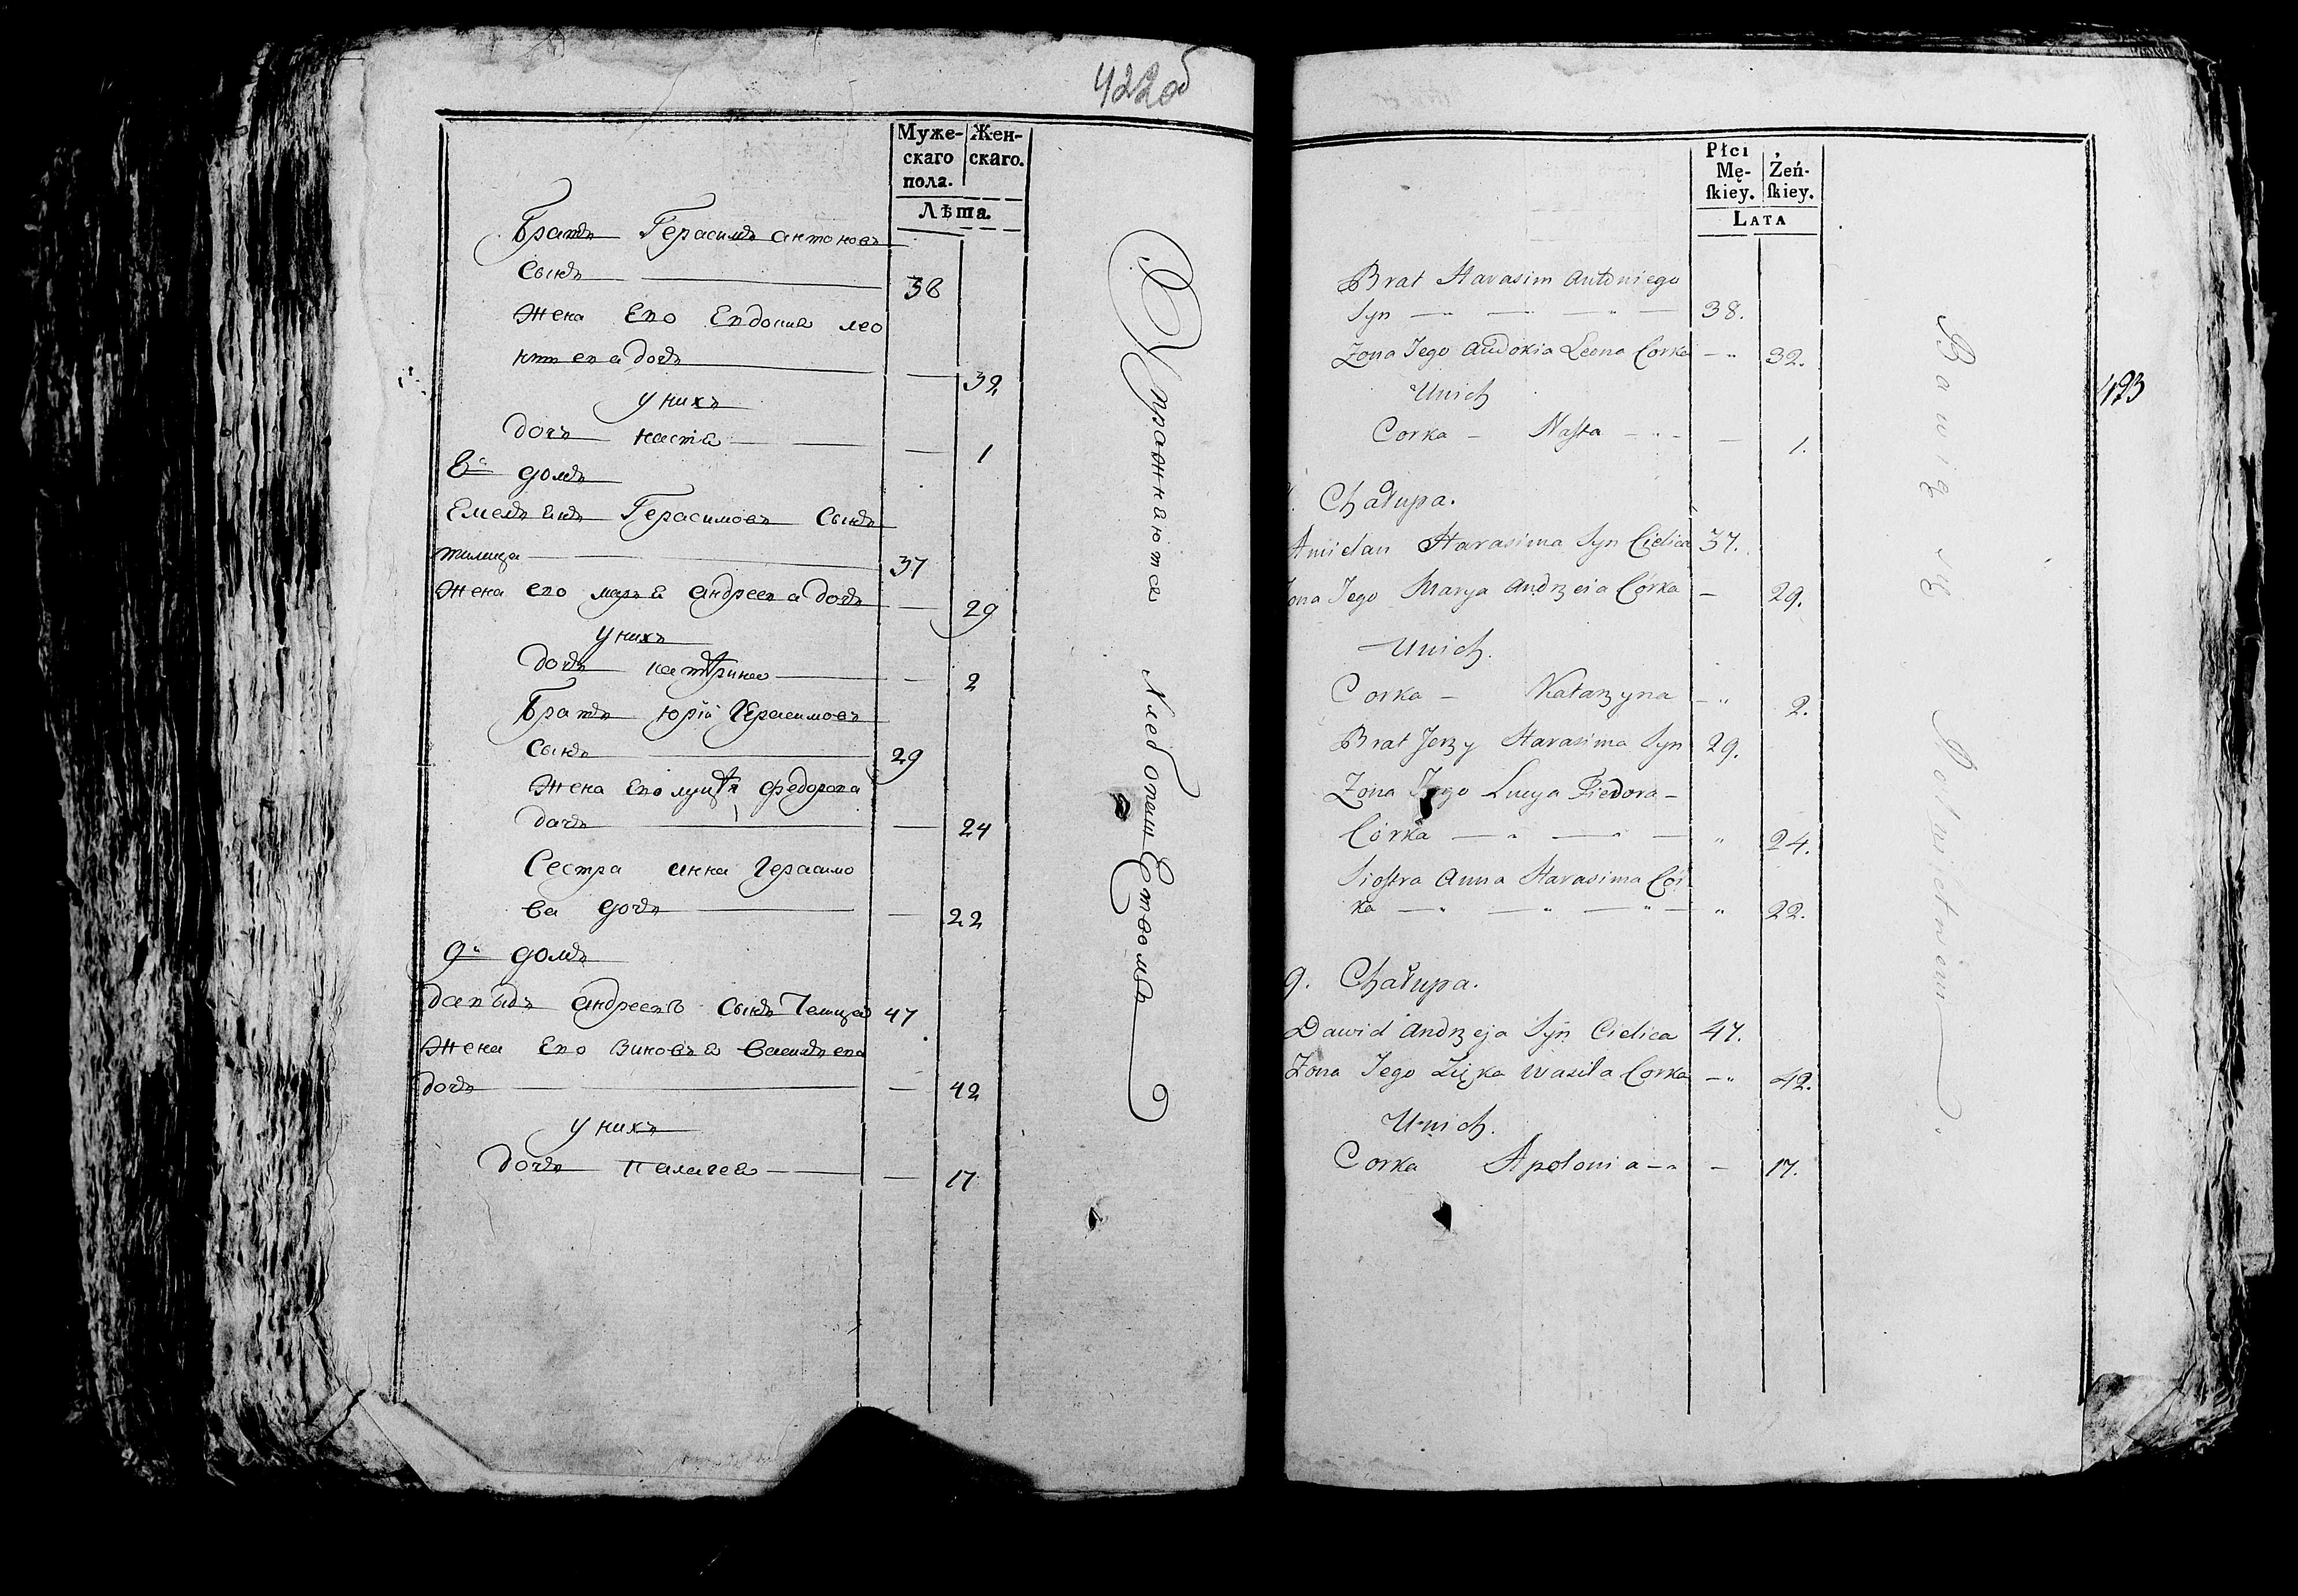 422об
Муже-
скаго
пола.
Жен-
скаго.
Лѣта.
Братъ Герасимъ антоновъ
Сынъ 38
Жена Его Евдокия лео
нтева дочь — 32
у нихъ
дочь настя — 1
8й домъ
Емельянъ Герасимовъ Сынъ
37
Жена его марья андреева дочь — 29
у нихъ
дочь катѣрина — 2
Братъ юрій Герасимовъ
Сынъ 29
Жена Его луцѣя федорова
дочь — 24
Сестра анна Герасимо
ва дочь — 22
9й домъ
давыдъ андреевъ Сынъ 47
Жена Его Зиновья васильева
дочь — 42
у нихъ
дочь палагея — 17
Упражняются Хлебопашеством
Płci
Mę-
ſkiey.
Żeń-
ſkiey.
LATA
Brat Harasim Antoniego
Syn 38.
Żona Jego Audokia Leona Corka 32.
Unich
Corka — Naſta — 1.
Chałupa.
Amielan Harasima Syn Cielica 37.
ona Jego Marya Andrzeia Córka — 29.
Unich.
Corka — Katarzyna — 2.
Brat Jerzy Harasima Syn 29.
Żona Jego Lucya Fiedora —
Córka — 24.
Sioſtra Anna Harasima Cór
ka — 22.
9. Chałupa.
Dawid Andrzeja Syn Cielica 47.
Żona Jego Wasila Corka — 42.
Unich.
Corka Apolonia — 17.
Bawią się Rolnictwem
423